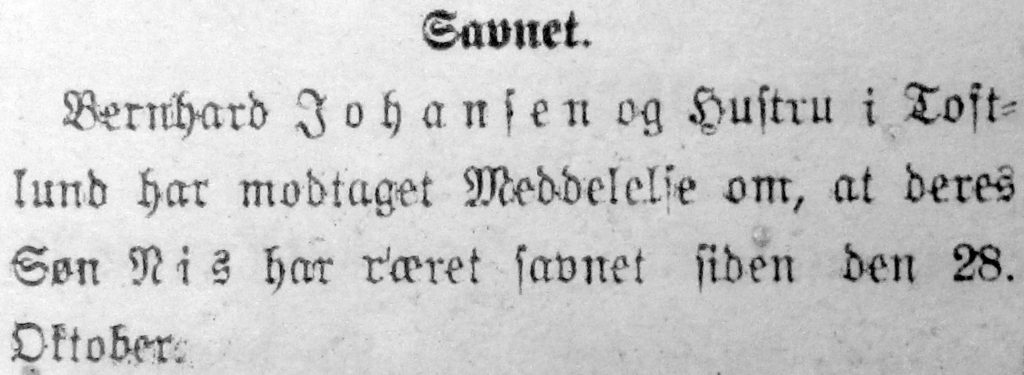 Savnet.
Bernhard Johansen og Hustru i Toft-
lund har modtaget Meddelelse om, at deres
Søn Nis har været savnet siden den 28.
Oktober.